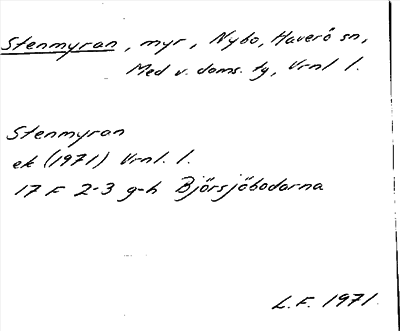 Stenmyran, myr, Nybo, Haverö sn,
Med v. doms. tg, Vrnl l.
Stenmyran
ek (1971) Vrnl. l.
17 F 2-3 g-h Björsjöbodarna
L.F. 1971